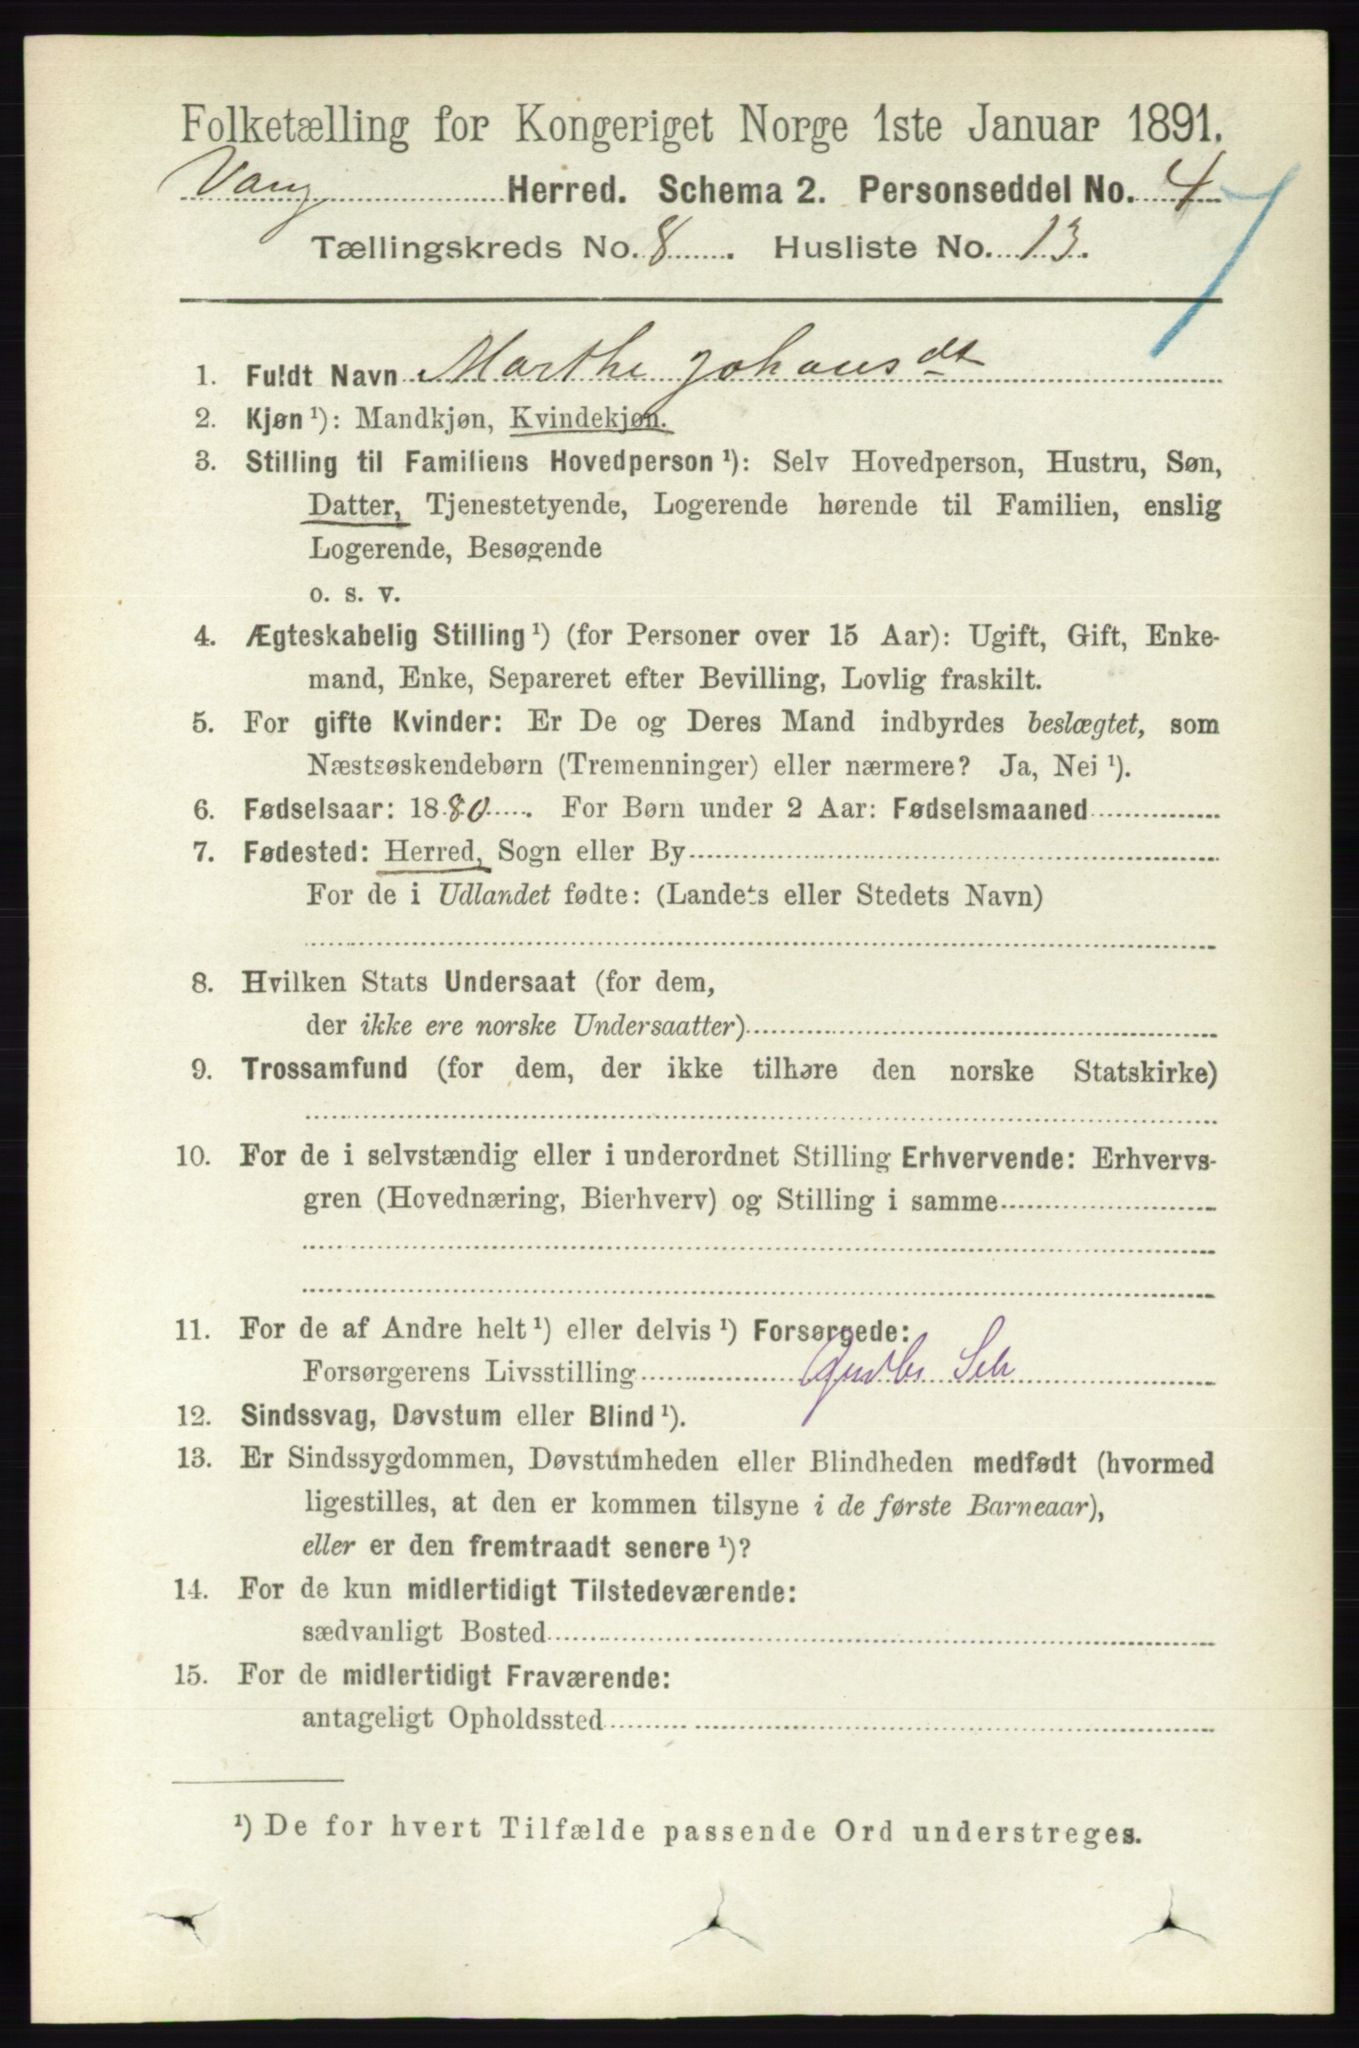 Folketælling for Kongeriget Norge 1ste Januar 1891.
Vang Herred. Schema 2. Personseddel No. 4
Tællingskreds No. 8. Husliste No. 13.
1. Fuldt Navn Marthe Johansdt
2. Kjøn ¹): Mandkjøn, Kvindekjøn.
3. Stilling til Familiens Hovedperson ¹): Selv Hovedperson, Hustru, Søn,
Datter, Tjenestetyende, Logerende hørende til Familien, enslig
Logerende, Besøgende
o. s. v.
4. Ægteskabelig Stilling ¹) (for Personer over 15 Aar): Ugift, Gift, Enke-
mand, Enke, Separeret efter Bevilling, Lovlig fraskilt.
5. For gifte Kvinder: Er De og Deres Mand indbyrdes beslægtet, som
Næstsøskendebørn (Tremenninger) eller nærmere? Ja, Nei ¹).
6. Fødselsaar: 1880. For Børn under 2 Aar: Fødselsmaaned
7. Fødested: Herred, Sogn eller By
For de i Udlandet fødte: (Landets eller Stedets Navn)
8. Hvilken Stats Undersaat (for dem,
der ikke ere norske Undersaatter)
9. Trossamfund (for dem, der ikke tilhøre den norske Statskirke)
10. For de i selvstændig eller i underordnet Stilling Erhvervende: Erhvervs-
gren (Hovednæring, Bierhverv) og Stilling i samme
11. For de af Andre helt ¹) eller delvis ¹) Forsørgede:
Forsørgerens Livsstilling
12. Sindssvag, Døvstum eller Blind ¹).
13. Er Sindssygdommen, Døvstumheden eller Blindheden medfødt (hvormed
ligestilles, at den er kommen tilsyne i de første Barneaar),
eller er den fremtraadt senere ¹)?
14. For de kun midlertidigt Tilstedeværende:
sædvanligt Bosted
15. For de midlertidigt Fraværende:
antageligt Opholdssted
¹) De for hvert Tilfælde passende Ord understreges.